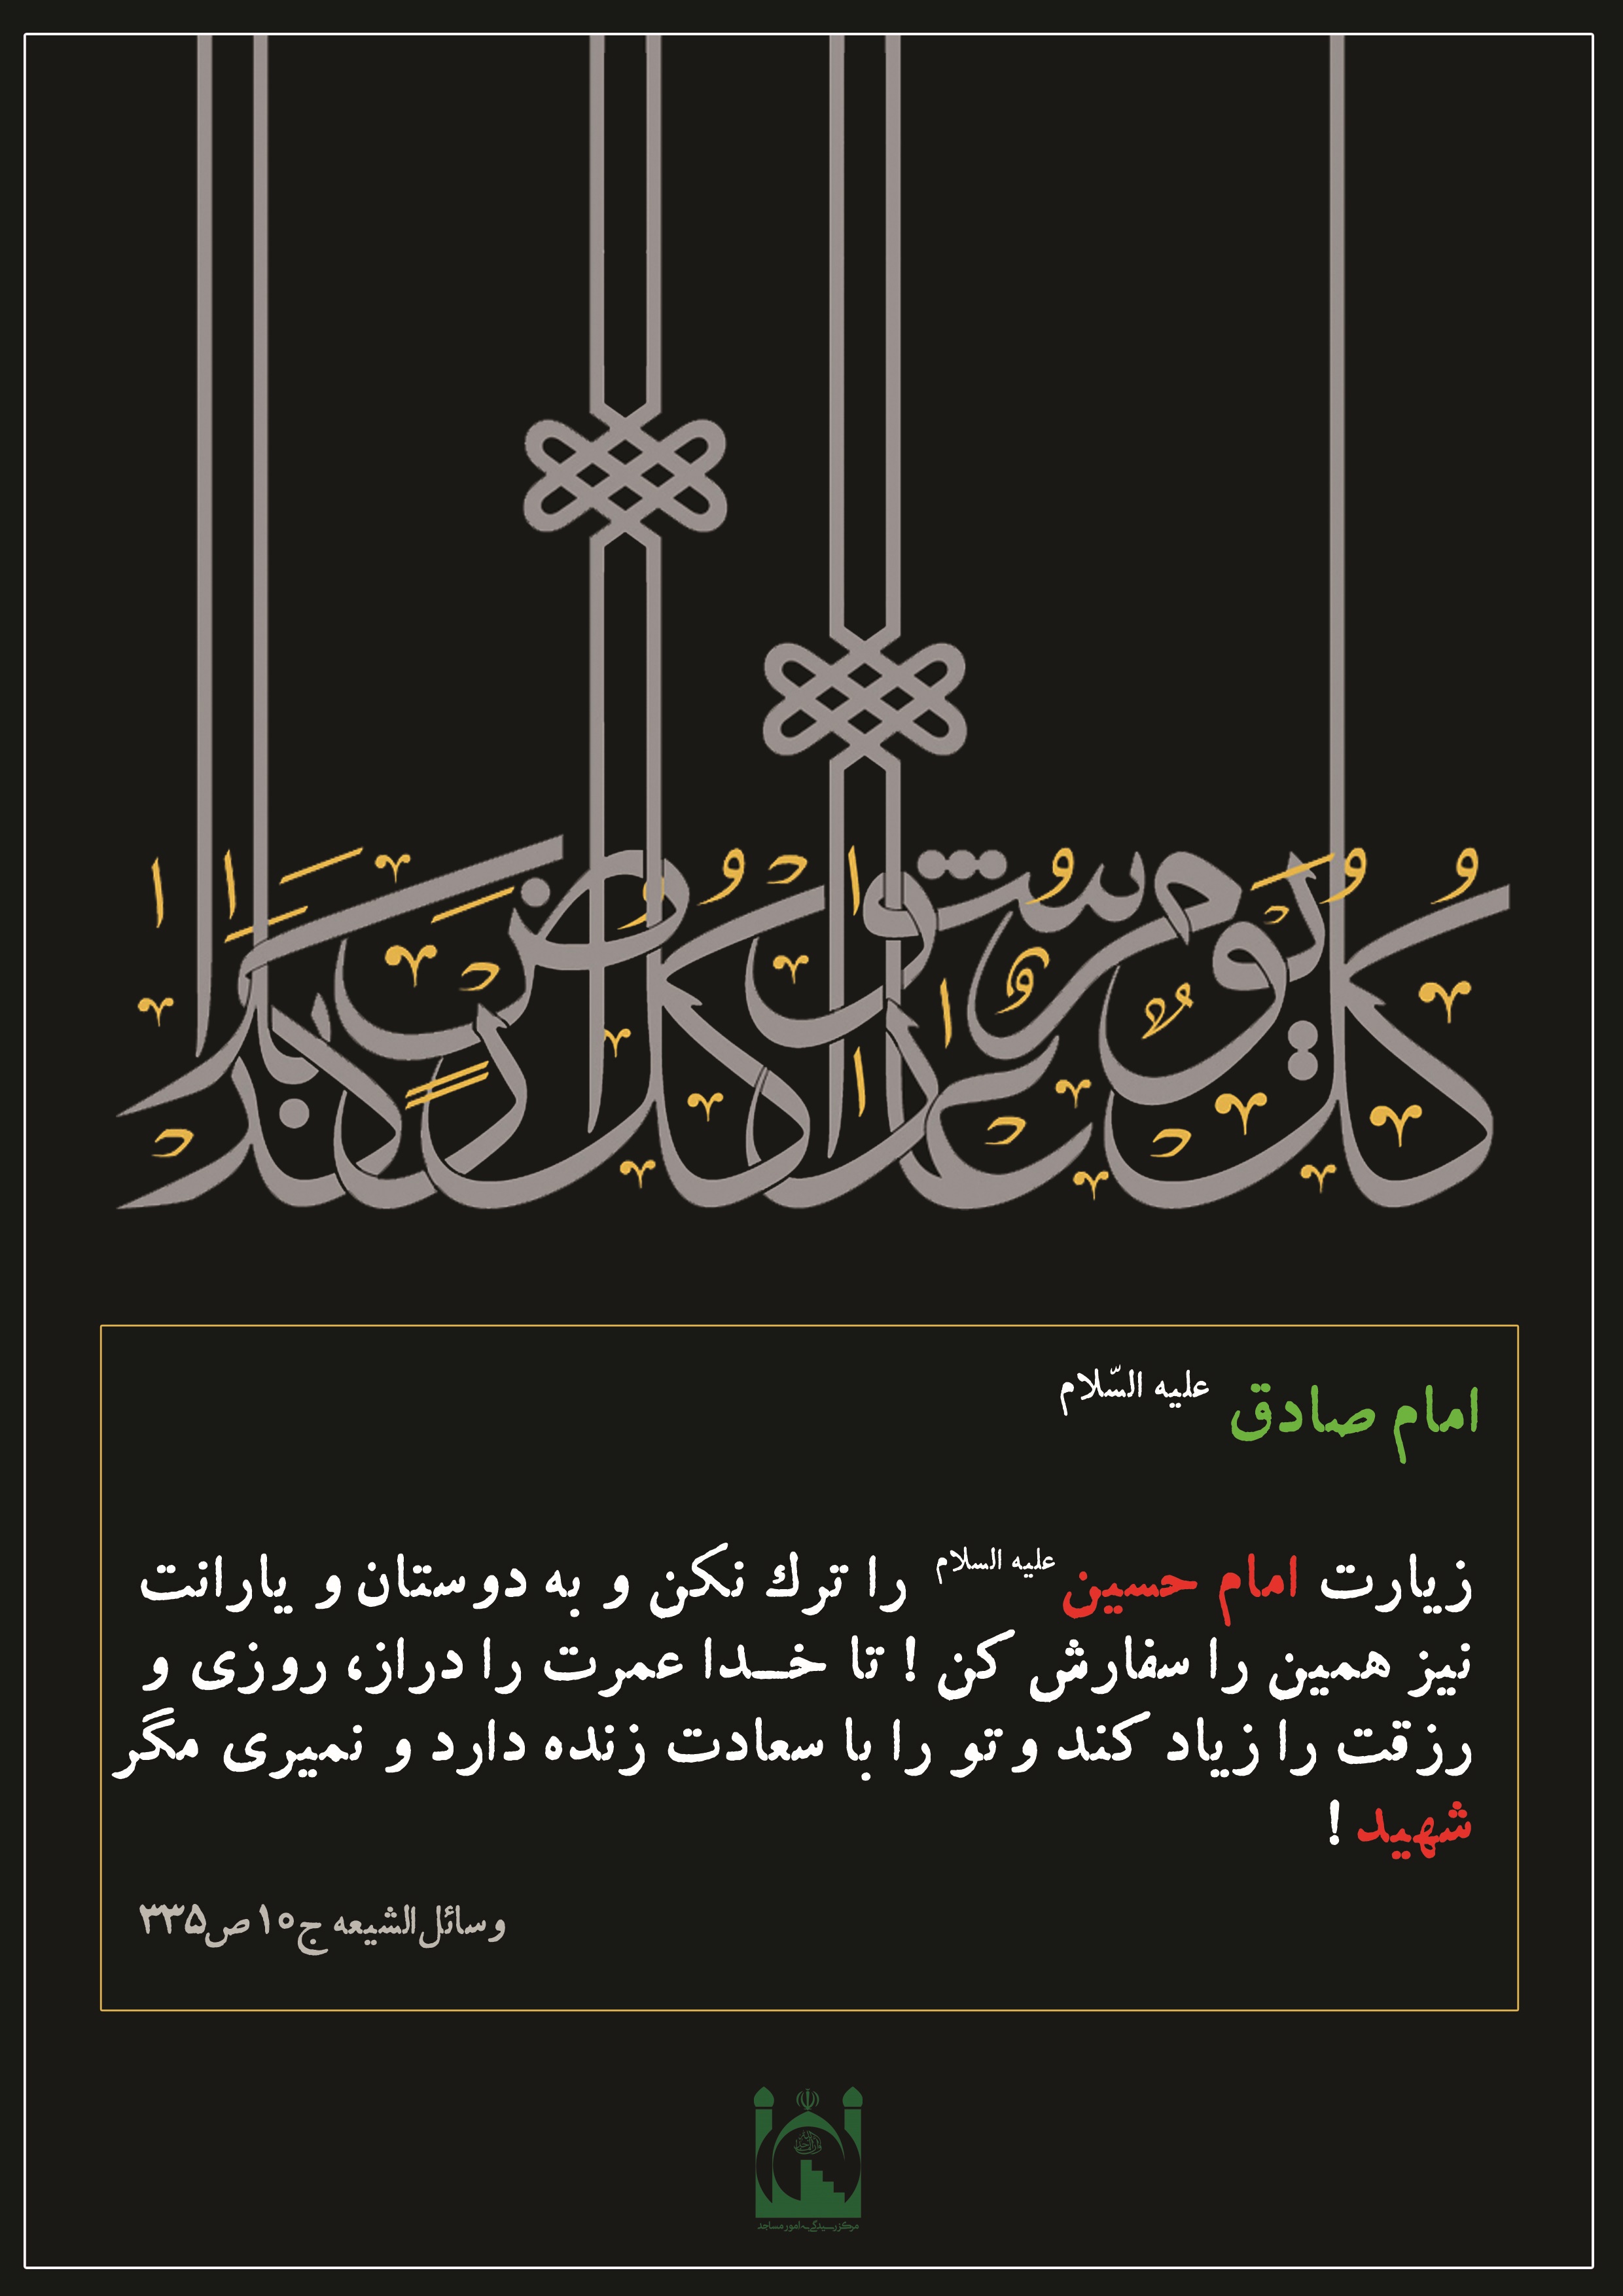 كل يوم عاشوراء و كل ارض كربلاء
امام صادق علیه السّلام
زیارت امام حسین علیه السلام را ترك نكن و به دوستان و یارانت
نیز همین را سفارش کن ! تا خـدا عمرت را دراز، روزی و
رزقت را زیاد کند و تو را با سعادت زنده دارد و نمیری مگر
شهید !
وسائل الشیعه ج۱۰ص۳۳۵
مرکز رسیدگی به امور مساجد